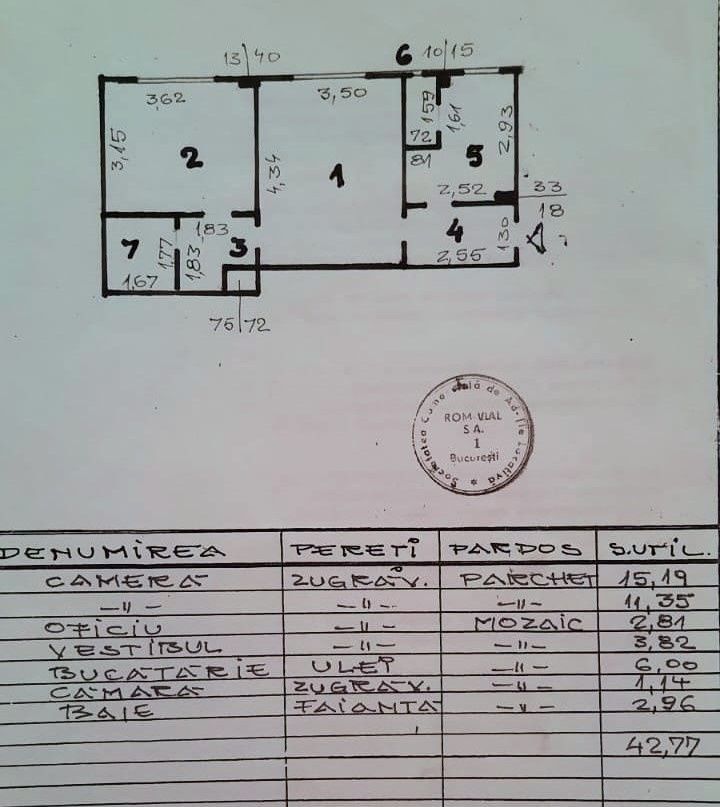 13 40
6 10 15
3,62
3,50
1,59
1,61
3,15
2
4,34
1
72
81
5
2,93
2,52
33
18
1,83
7
1,77
1,83
3
4
1,30
1,67
2,55
75 72
Societatea Locativa
ROM VIAL
S.A.
1
București
DENUMIREA PERETI PARDOS S.UTIL.
CAMERA ZUGRAV. PARCHET 15,19
—"— —"— —"— 11,35
OFICIU —"— MOZAIC 2,81
VESTIBUL —"— —"— 3,82
BUCATARIE ULEI —"— 6,00
CAMARA ZUGRAV. —"— 1,14
BAIE FAIANTA —"— 2,96
42,77